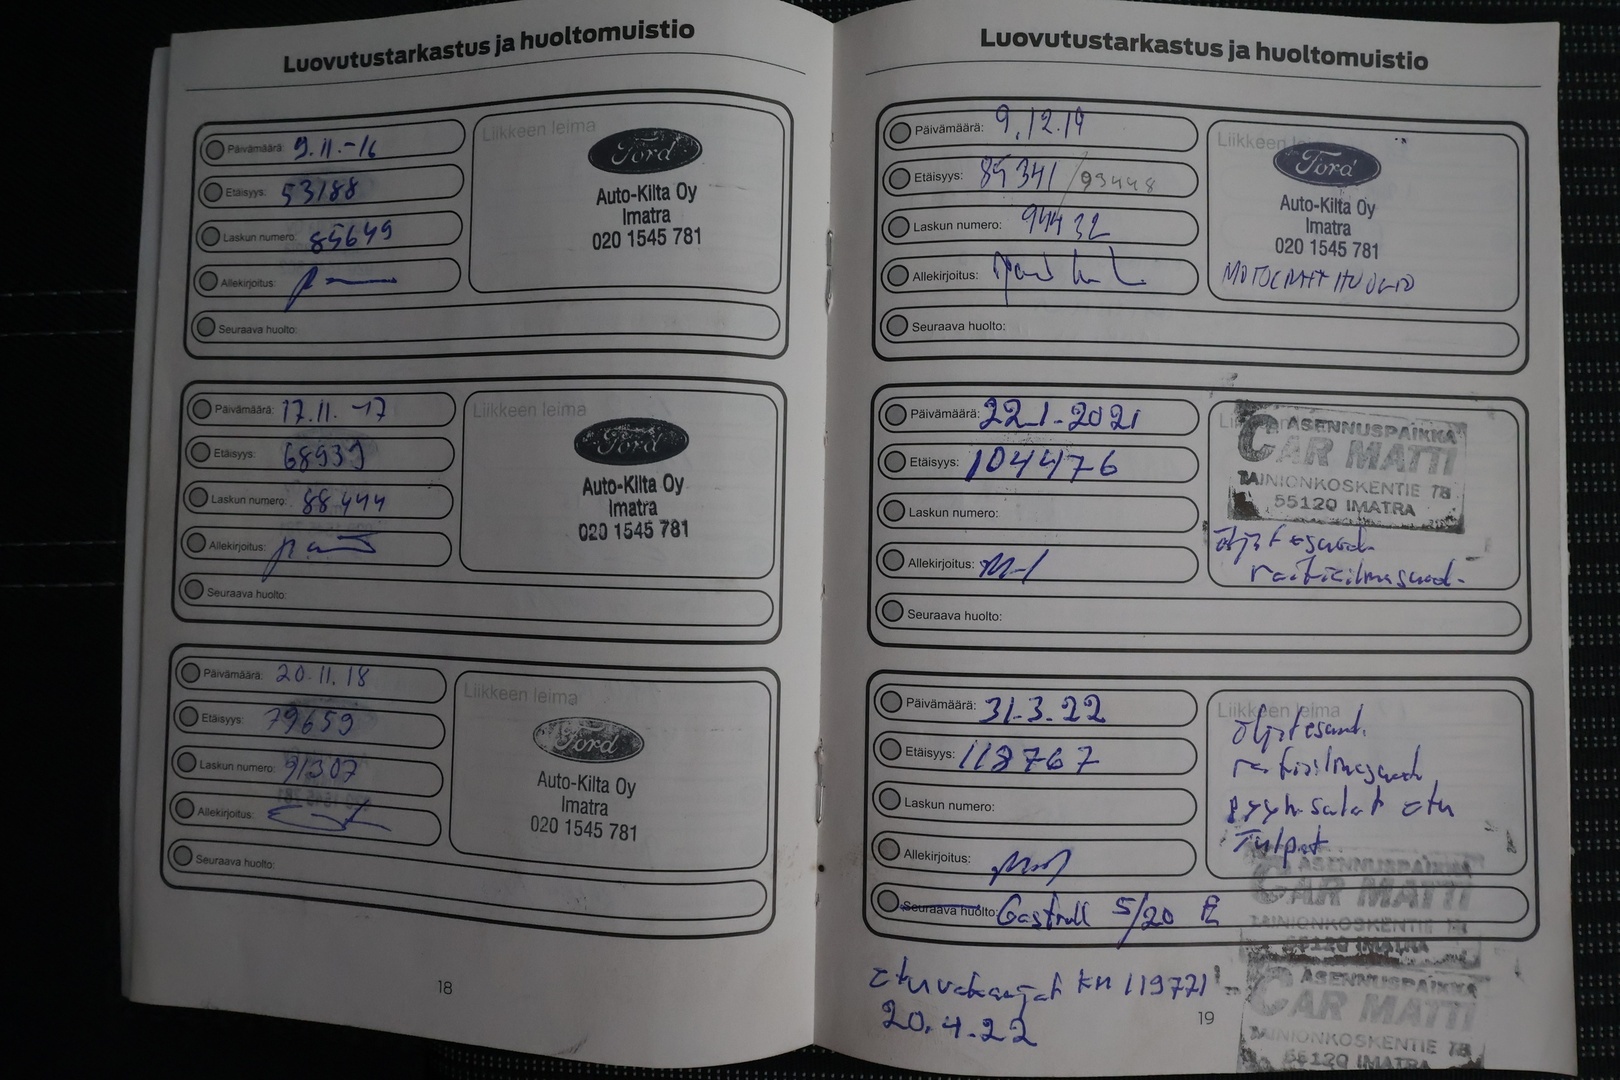 Luovutustarkastus ja huoltomuistio
Päivämäärä: 9.11.-16
Etäisyys: 53188
Laskun numero: 85649
Allekirjoitus:
Seuraava huolto:
Liikkeen leima
Ford
Auto-Kilta Oy
Imatra
020 1545 781
Päivämäärä: 17.11.-17
Etäisyys: 68939
Laskun numero: 88444
Allekirjoitus:
Seuraava huolto:
Liikkeen leima
Ford
Auto-Kilta Oy
Imatra
020 1545 781
Päivämäärä: 20.11.18
Etäisyys: 79659
Laskun numero: 91307
Allekirjoitus:
Seuraava huolto:
Liikkeen leima
Ford
Auto-Kilta Oy
Imatra
020 1545 781
18
Luovutustarkastus ja huoltomuistio
Päivämäärä: 9.12.19
Etäisyys: 85341 / 93448
Laskun numero: 94432
Allekirjoitus:
Seuraava huolto:
Liikkeen
Ford
Auto-Kilta Oy
Imatra
020 1545 781
MOTOCRAFT HUOLTO
Päivämäärä: 22.1.2021
Etäisyys: 104476
Laskun numero:
Allekirjoitus:
Seuraava huolto:
ASENNUSPAIKKA
CAR MATTI
TAINIONKOSKENTIE 78
55120 IMATRA
raitisilmasuod.
Päivämäärä: 31.3.22
Etäisyys: 118767
Laskun numero:
Allekirjoitus:
Seuraava huolto: Castroll 5/20
Liikkeen leima
raitisilmasuod
pyyh.sulat etu
Tulpat
ASENNUSPAIKKA
CAR MATTI
TAINIONKOSKENTIE 78
55120 IMATRA
km 119771
20.4.22
ASENNUSPAIKKA
CAR MATTI
TAINIONKOSKENTIE 78
55120 IMATRA
19